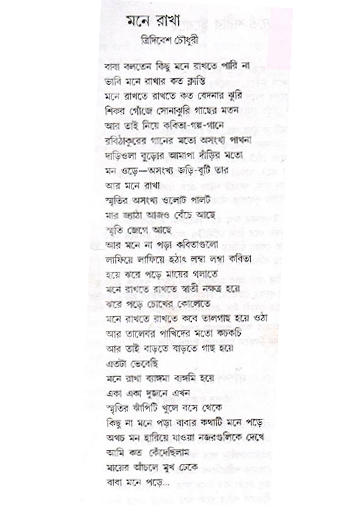 মনে রাখা
ত্রিদিবেশ চৌধুরী
বাবা বলতেন কিছু মনে রাখতে পারি না
ভাবি মনে রাখার কত ক্লান্তি
মনে রাখতে রাখতে কত বেদনার ঝুরি
শিকর গোঁজে সোনাঝুরি গাছের মতন
আর তাই নিয়ে কবিতা-গল্প-গানে
রবিঠাকুরের গানের মতো অসংখ্য পাখনা
দাড়িওলা বুড়োর আমাপা দাঁড়ির মতো
মন ওড়ে—অসংখ্য জড়ি-বুটি তার
আর মনে রাখা
স্মৃতির অসংখ্য ওলোট পালট
মার জ্যাঠা আজও বেঁচে আছে
স্মৃতি জেগে আছে
আর মনে না পড়া কবিতাগুলো
লাফিয়ে লাফিয়ে হঠাৎ লম্বা লম্বা কবিতা
হয়ে ঝরে পড়ে মায়ের গলাতে
মনে রাখতে রাখতে স্বাতী নক্ষত্র হয়ে
ঝরে পড়ে চোখের কোলেতে
মনে রাখতে রাখতে কবে তালগাছ হয়ে ওঠা
আর তালের পাখিদের মতো কচকচি
আর তাই বাড়তে বাড়তে গাছ হয়ে
এতটা ভেবেছি
মনে রাখা ব্যাঙ্গমা ব্যাঙ্গমি হয়ে
একা একা দুজনে এখন
স্মৃতির ঝাঁপিটি খুলে বসে থেকে
কিছু না মনে পড়া বাবার কথাটি মনে পড়ে
অথচ মন হারিয়ে যাওয়া নজরগুলিকে দেখে
আমি কত কেঁদেছিলাম
মায়ের আঁচলে মুখ ঢেকে
বাবা মনে পড়ে...